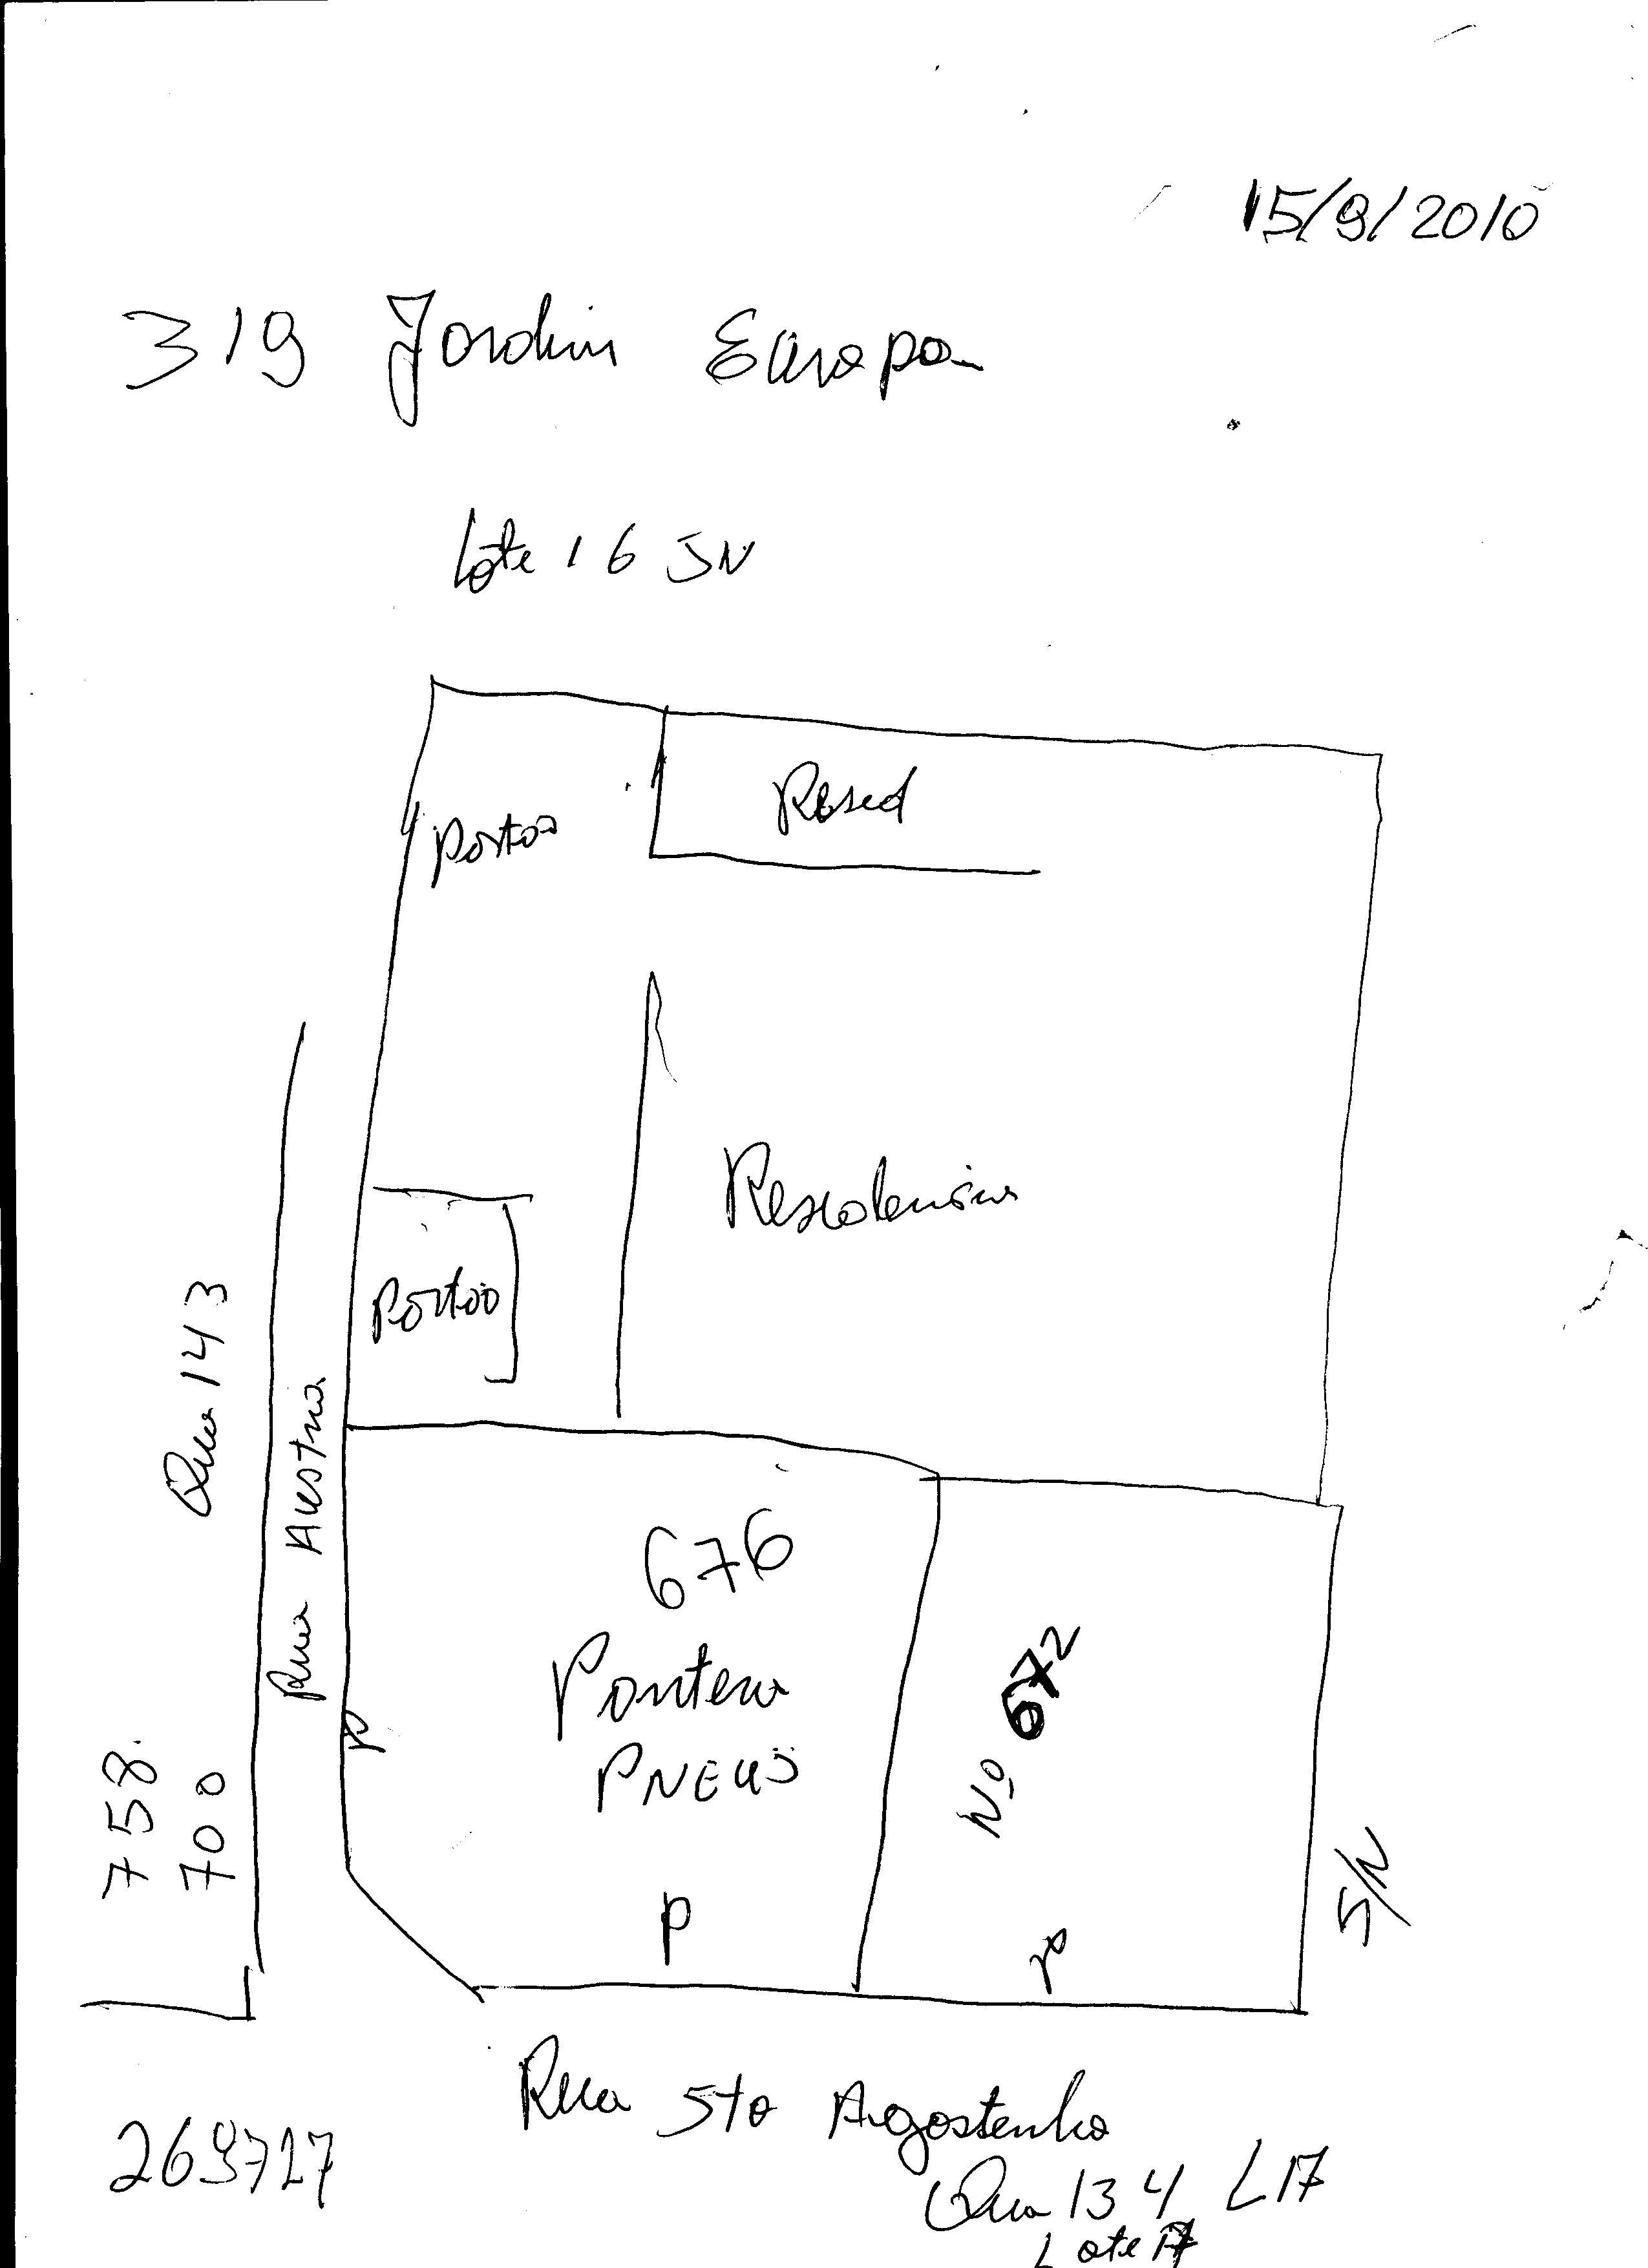 15/9/2010
319 Jardim Europa
Lote 16 SN
Portão
Resid
Residencia
Portão
Qua 143
Rua Austria
676
Ponteza
PNEUS
Nº 672
P
P
P
758
700
S/N
Rua Sto Agostinho
269727
Qua 134 L17
Lote 17